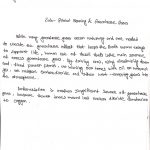 Global Warming & Greenhouse Gases
While many greenhouse gases occur naturally and are needed
to create the greenhouse effect that keeps the Earth warm enough
to support life, human use of fossil fuels is the main source
of excess greenhouse gases. By driving cars, using electricity from
coal-fired power plants, or heating our homes with oil or natural
gas, we release carbon dioxide and other heat-trapping gases into
the atmosphere.
Deforestation is another significant source of greenhouse
gases, because fewer trees means less carbon dioxide conversion
to oxygen.